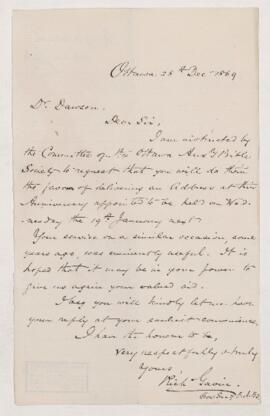 Ottawa 28th Dec 1869
Dr. Dawson.
Dear Sir,
I am instructed by
the Committee of the Ottawa Auxy Bible
Society to request that you will do them
the favor of delivering an Address at their
Anniversary appointed to be held on Wed-
nesday the 19th January next
Your service on a similar occasion, some
years ago, was eminently useful. It is
hoped that it may be in your power to
give us again your valued aid.
I beg you will kindly let me have
your reply at your earliest convenience
I have the honour to be,
Very respectfully & truly
Yours,
Rich Gavin